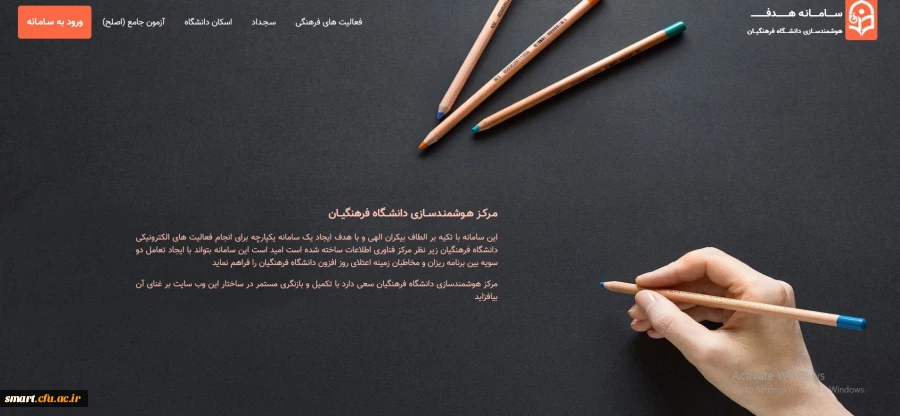 سـامـانه هـــدفــــ
هوشمندسـازی دانشـگاه فرهنگیـان
فعالیت های فرهنگی
سجـداد
اسکان دانشگاه
آزمون جامع (اصلح)
ورود به سـامـانه
مـرکـز هـوشمنـدسـازی دانشـگاه فرهنگیـان
این سامانه با تکیه بر الطاف بیکران الهی و با هدف ایجاد یک سامانه یکپارچه برای انجام فعالیت های الکترونیکی
دانشگاه فرهنگیان زیر نظر مرکز فناوری اطلاعات ساخته شده است امید است این سامانه بتواند با ایجاد تعامل دو
سویه بین برنامه ریزان و مخاطبان زمینه اعتلای روز افزون دانشگاه فرهنگیان را فراهم نماید
مرکز هوشمندسازی دانشگاه فرهنگیان سعی دارد با تکمیل و بازنگری مستمر در ساختار این وب سایت بر غنای آن
بیافزاید
Activate Windows
Windows.
smart.cfu.ac.ir